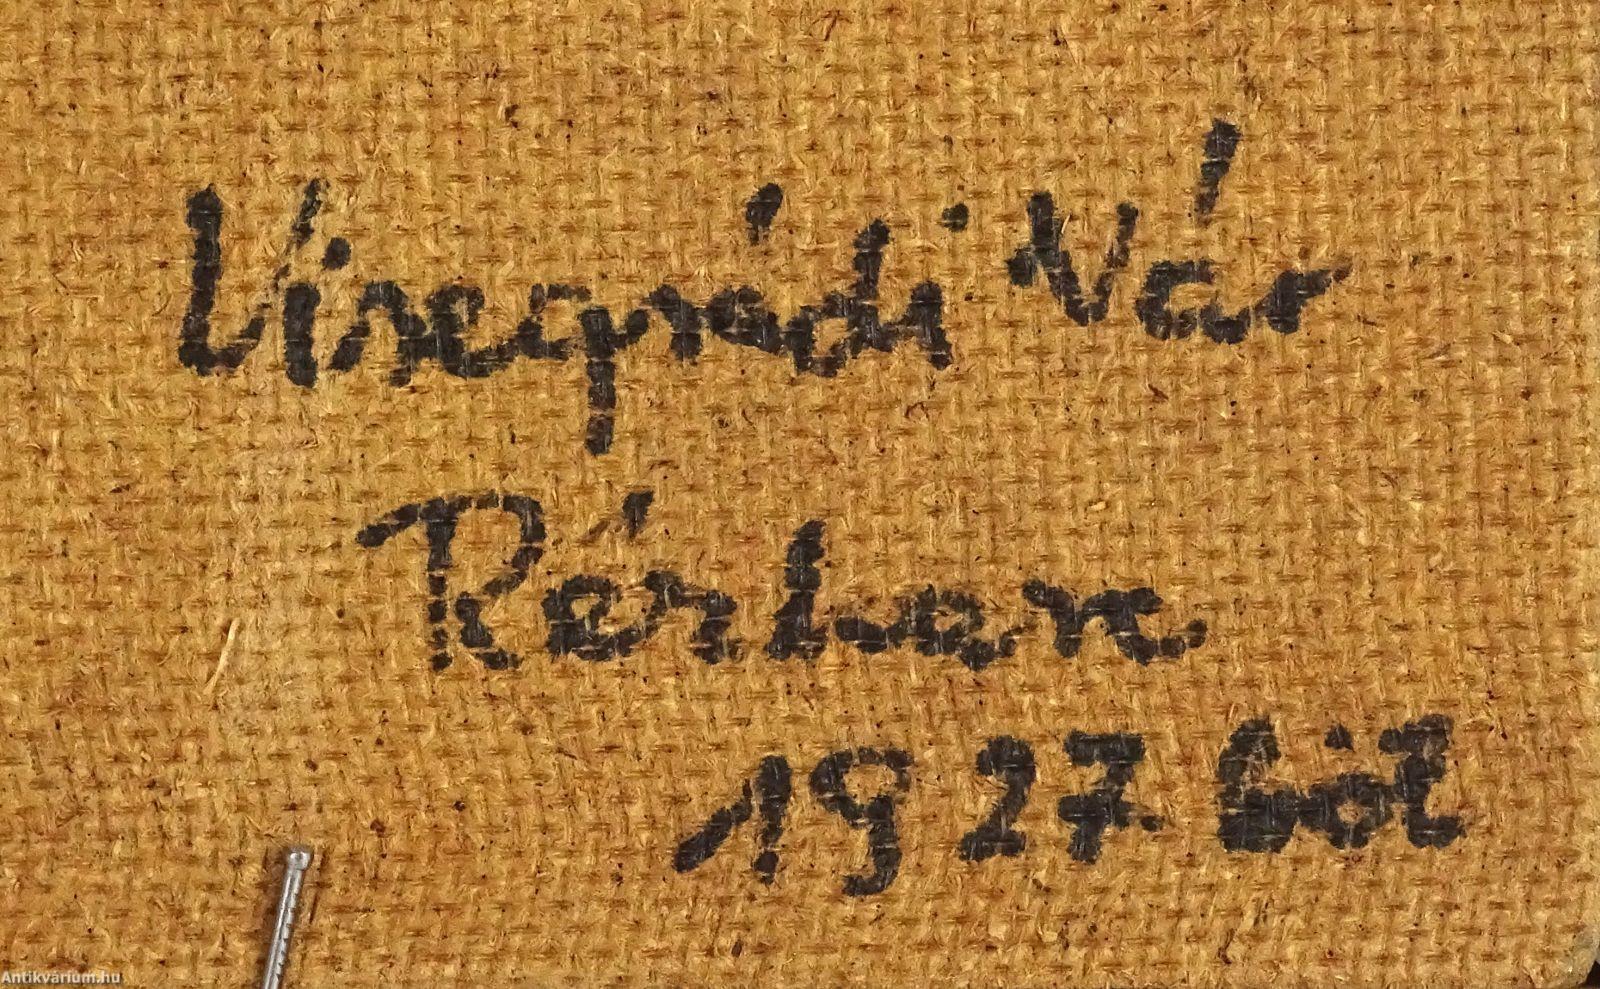 Visegrádi Vár
1927 ből
Antikvárium.hu